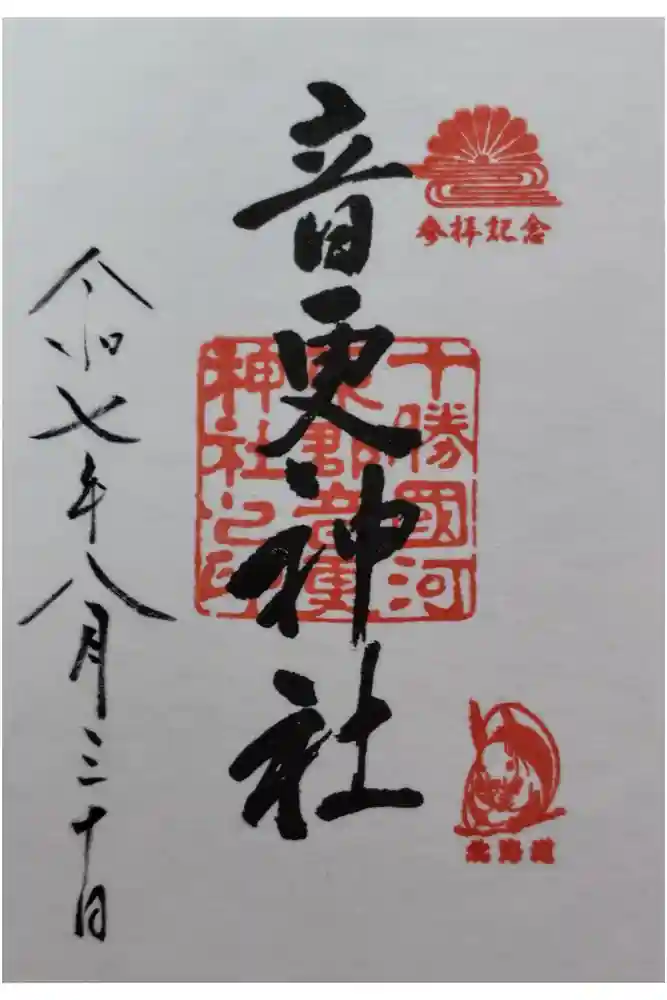 参拝記念
音更神社
十勝國河
東郡音更
神社之印
令和七年八月三十日
北海道